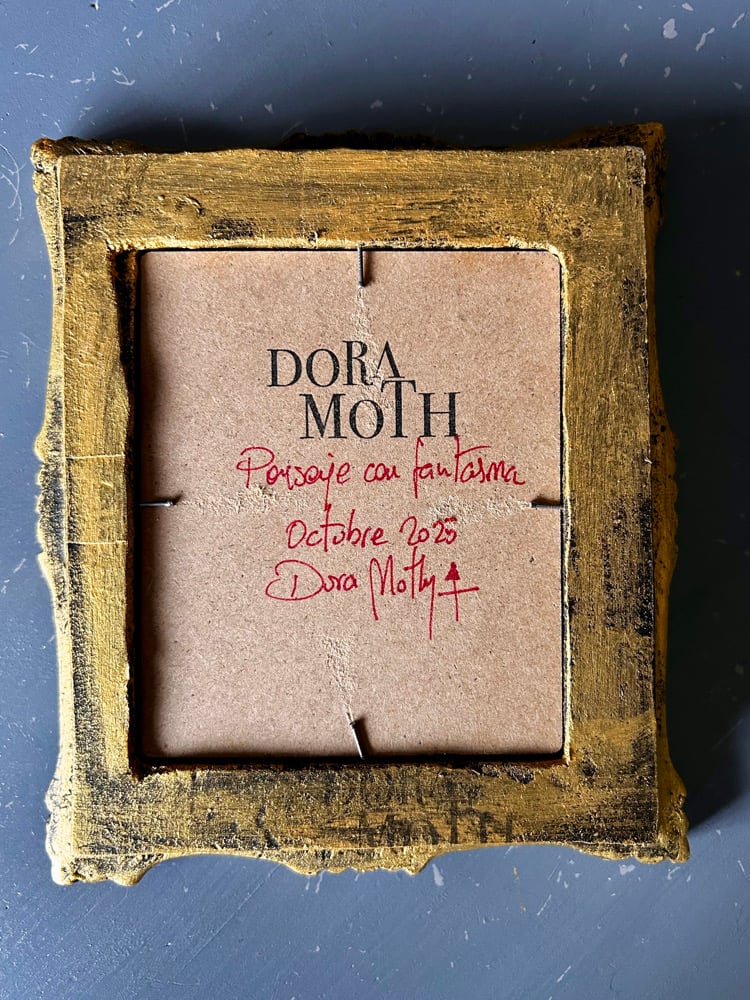 DORA
MOTH
Paisaje con fantasma
Octubre 2025
Dora Moth
DORA
MOTH